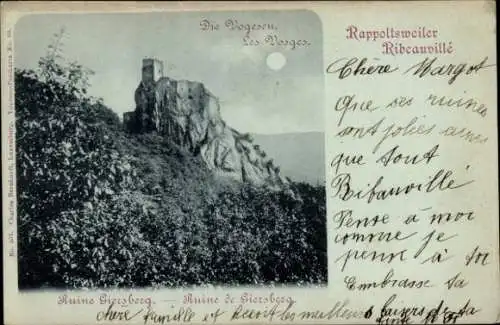 Die Vogesen.
Les Vosges.
Rappoltsweiler
Ribeauvillé
Chère Margot
que ses ruines
sont jolies ainsi
que tout
Ribauvillé
Pense à moi
comme je
pense à
Embrasse ta
chère famille et écrit les meilleurs
baisers de ta
Ruine Giersberg. — Ruine de Giersberg.
Charles Bernhoeft, Luxembourg.